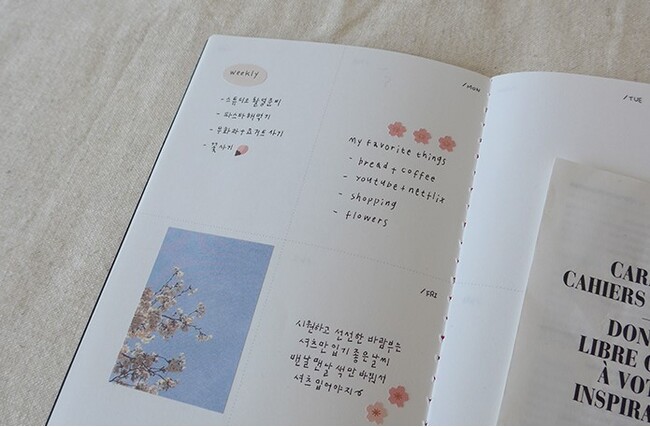 weekly
- 스튜디오 촬영준비
- 파스타 해먹기
- 무화과 + 요거트 사기
- 꽃사기
/MON
my favorite things
- bread + coffee
- youtube + netflix
- shopping
- flowers
/TUE
/FRI
시원하고 선선한 바람부는
셔츠만 입기 좋은 날씨
맨날 맨날 색만 바꿔서
셔츠 입어야지
CAR
CAHIERS
DON
LIBRE
À VOT
INSPIRA